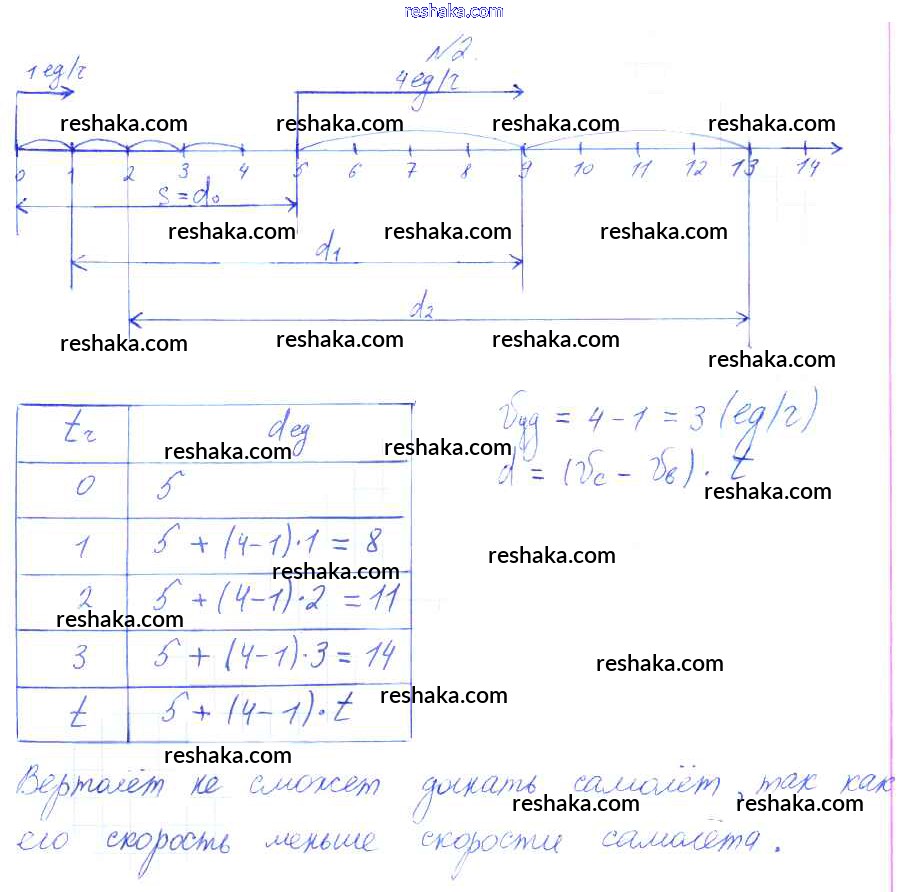 reshaka.com
№2.
1 ед/ч
4 ед/ч
reshaka.com reshaka.com reshaka.com reshaka.com
0 1 2 3 4 5 6 7 8 9 10 11 12 13 14
S = d₀
reshaka.com reshaka.com reshaka.com
d₁
d₂
reshaka.com reshaka.com reshaka.com reshaka.com
t ч d ед
reshaka.com reshaka.com
0 5
1 5 + (4-1)·1 = 8
reshaka.com
2 5 + (4-1)·2 = 11
reshaka.com
3 5 + (4-1)·3 = 14
t 5 + (4-1)·t
reshaka.com
reshaka.com
𝒱уд = 4 - 1 = 3 (ед/ч)
d = (𝒱с - 𝒱в)·t
reshaka.com
reshaka.com
reshaka.com
Вертолёт не сможет догнать самолёт, так как
reshaka.com reshaka.com
его скорость меньше скорости самолёта.